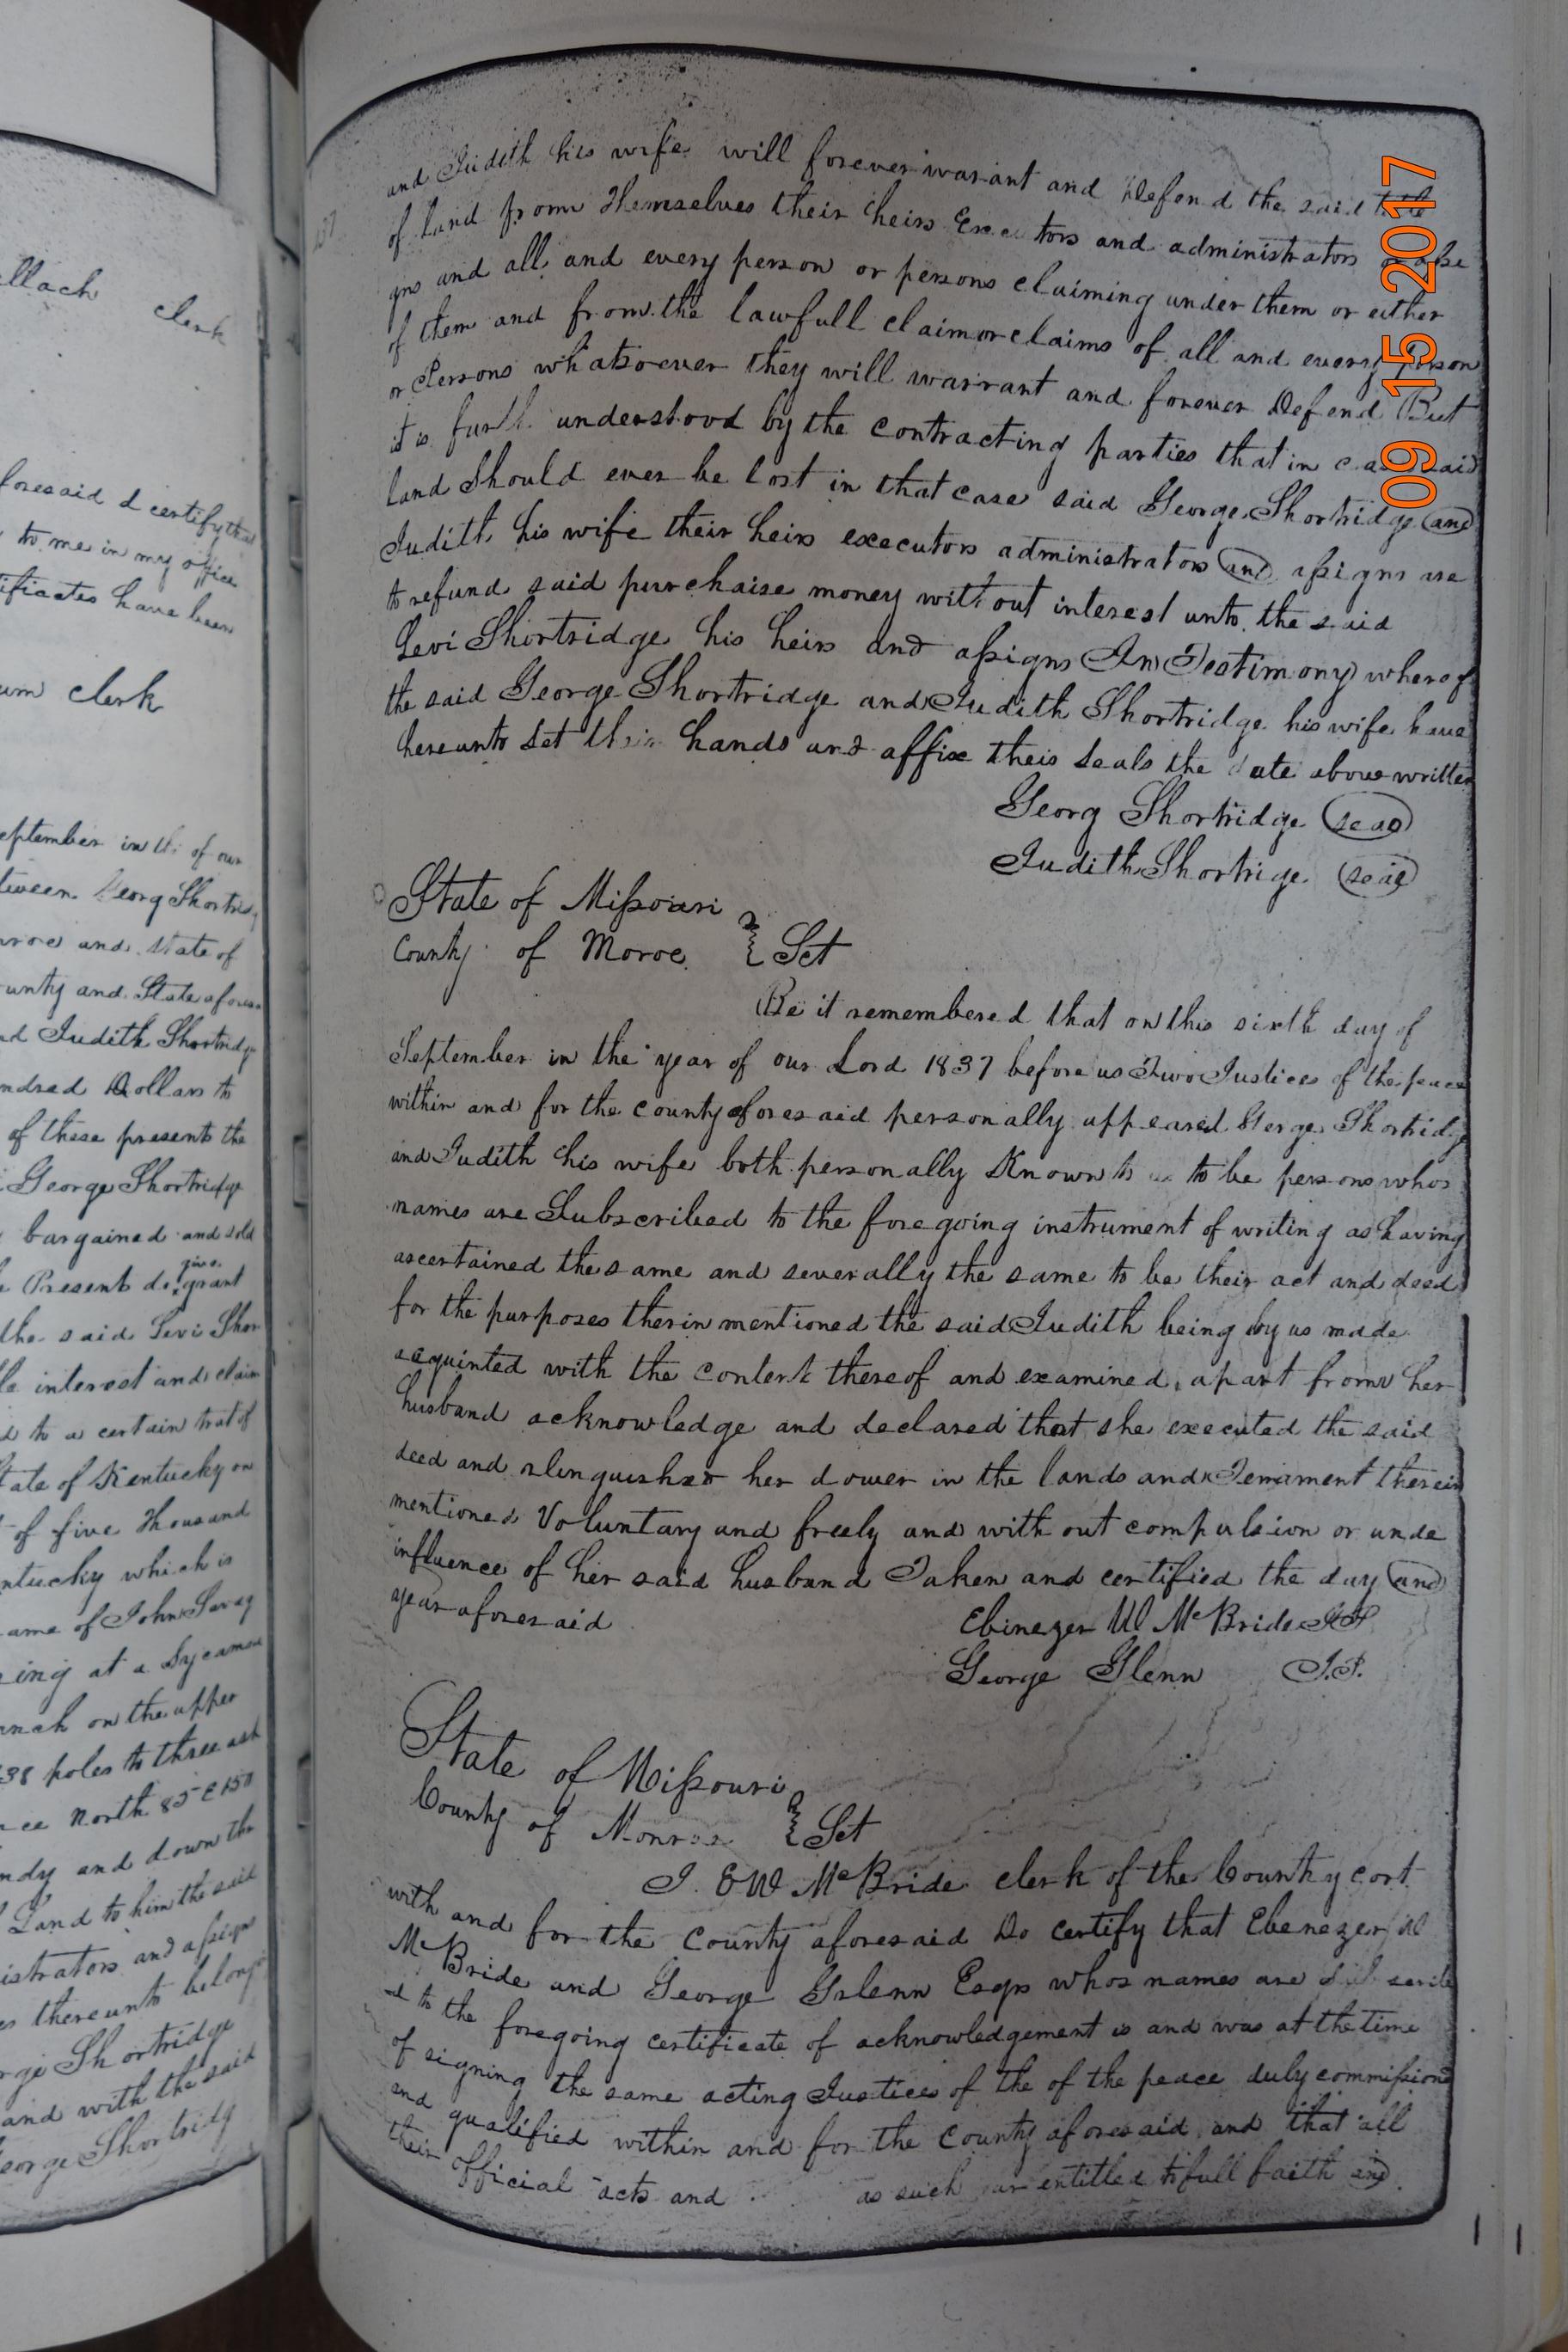 llach clerk
foresaid d certify that
to me in my office
ificates have been
um clerk
eptember in the of our
tween Georg Shortridg
nroe and State of
unty and State afores
nd Judith Shortridg
ndred Dollars to
of these presents the
George Shortridge
bargained and sold
give
Present do grant
the said Levi Shor
le interest and claim
d to a certain trat of
tate of Kentucky on
of five Thousand
ntucky which is
ame of John Savag
ing at a Sycamore
anch on the upper
38 poles to three ash
ce North 85 E 150
ndy and down the
Land to him the said
istrators and assigns
es thereunto belong
rge Shortridge
and with the said
eorge Shortridg
and Judith his wife will forever warant and Defend the said title
of land from Themselves their heirs Executors and administrators or assi
gns and all and every person or persons claiming under them or either
of them and from the lawfull claim or claims of all and every person
or Persons whatsoever they will warrant and forever Defend But
it is furth understood by the contracting parties that in case said
land Should ever be lost in that case said George Shortridge and
Judith his wife their heirs executors administrators and assigns are
to refund said purchaise money without interest unto the said
Levi Shortridge his heirs and assigns In Testimony whereof
the said George Shortridge and Judith Shortridge his wife have
hereunto set their hands and affix theis seals the date above written
Georg Shortridge seal
Judith Shortrige seal
State of Missouri
County of Moroe } Sct
Be it remembered that on this sixth day of
September in the year of our Lord 1837 before us Two Justices of the peace
within and for the county aforesaid personally appeared Gerge Shortridge
and Judith his wife both personally Known to us to be persons whos
names are Subscribed to the foregoing instrument of writing as having
ascertained the same and severally the same to be their act and deed
for the purposes therin mentioned the said Judith being by us made
acquinted with the content thereof and examined apart from her
husband acknowledge and declared that she executed the said
deed and relinguished her dower in the lands and Temament therein
mentioned Voluntary and freely and with out compulsion or unde
influence of her said husband Taken and certified the day and
year aforesaid
Ebinezer W McBride J.P
George Glenn J.P.
State of Missouri
County of Monroe } Sct
I E W McBride clerk of the County cort
with and for the County aforesaid Do certify that Ebenezer W
McBride and George Grlenn Esqrs whos names are subscribe
d to the foregoing certificate of acknowledgement is and was at the time
of signing the same acting Justices of the of the peace duly commission
and qualified within and for the County aforesaid and that all
their official acts and as such are entitled to full faith and
09 15 2017